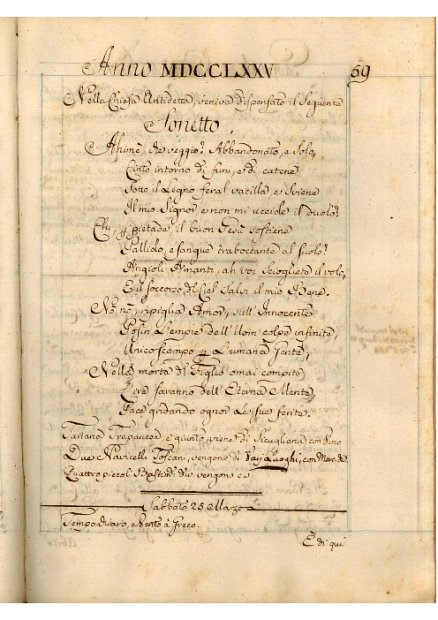 Anno MDCCLXXV
59
Nella Chiesa Antidetta, veniva dispensato il Seguente
Sonetto.
Ahimè, che veggio! Abbandonato, e Solo,
Cinto intorno di funi, e di catene
Sotto il Legno feral vacilla, e Sviene
Il mio Signor, e non mi uccide il duolo?
pietade, il buon Gesù sostiene
Pallido, e sangue traboccante al suolo?
Angioli Amanti, ah voi sciogliete il volo,
E in soccorso del Ciel Salvi il mio Bene.
No nò, ripiglia Amor, sull'Innocente
l'empie dell'Uom colpe infinite,
Unico scampo Ҏ l'umana Gente,
Nella morte del Figlio omai compite
faranno dell'Eterna Mente,
Pace gridando ognor le sue ferite.
Tartana Trapanese è giunta, viene di Sicugliana con vino
Due Navicelli Toscani, vengono di con Merce
Quattro piccoli Bastimti div. vengono
Sabbato 25 Marzo
Tempo chiaro, e Vento à Greco.
E di qui